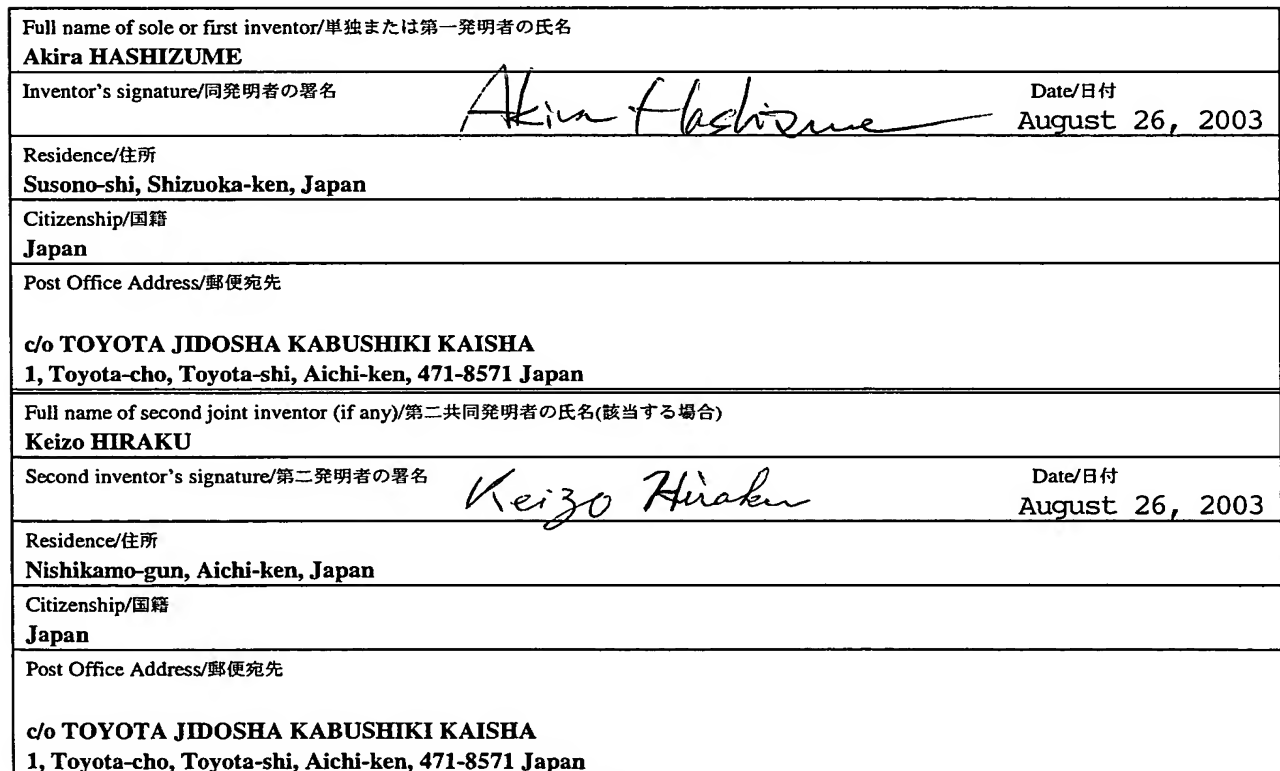 Full name of sole or first inventor/単独または第一発明者の氏名
Akira HASHIZUME
Inventor's signature/同発明者の署名 Akira Hashizume Date/日付
August 26, 2003
Residence/住所
Susono-shi, Shizuoka-ken, Japan
Citizenship/国籍
Japan
Post Office Address/郵便宛先
c/o TOYOTA JIDOSHA KABUSHIKI KAISHA
1, Toyota-cho, Toyota-shi, Aichi-ken, 471-8571 Japan
Full name of second joint inventor (if any)/第二共同発明者の氏名(該当する場合)
Keizo HIRAKU
Second inventor's signature/第二発明者の署名 Keizo Hiraku Date/日付
August 26, 2003
Residence/住所
Nishikamo-gun, Aichi-ken, Japan
Citizenship/国籍
Japan
Post Office Address/郵便宛先
c/o TOYOTA JIDOSHA KABUSHIKI KAISHA
1, Toyota-cho, Toyota-shi, Aichi-ken, 471-8571 Japan